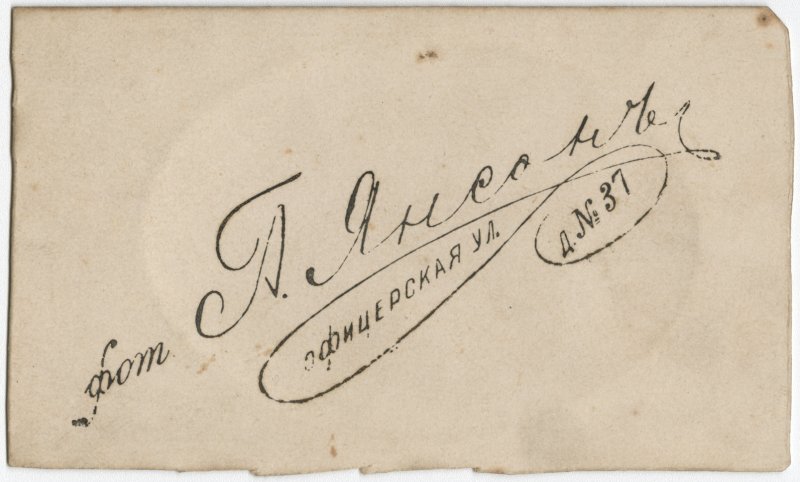 фот А. Янсонъ
ОФИЦЕРСКАЯ УЛ.
Д. № 37